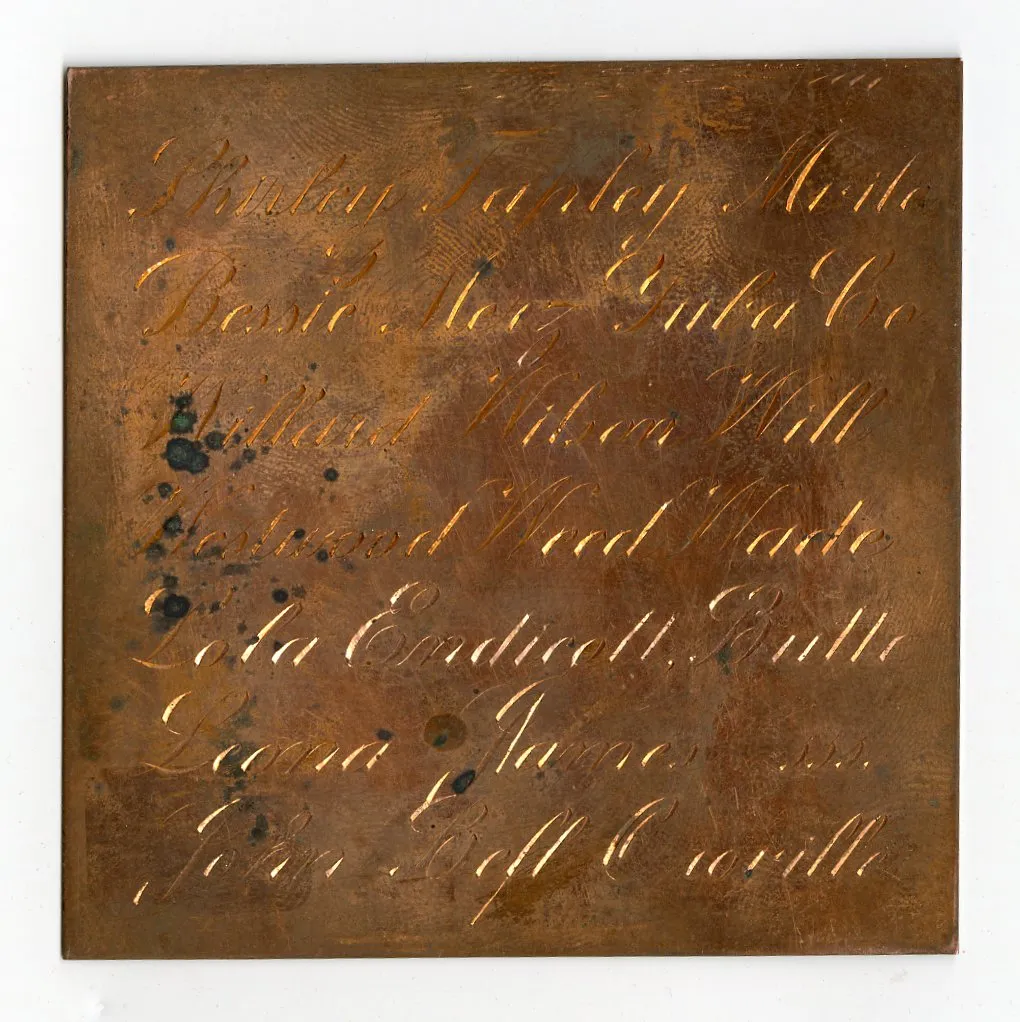 Shirley Tapley Merle
Bessie Inez Guba Cro
Willard Wilson Will
Westwood Weed Wade
Lola Endicott, Butte
Leona James sss.
John Goff Orville